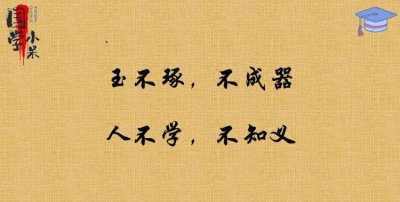 国学
小呆
玉不琢，不成器
人不学，不知义